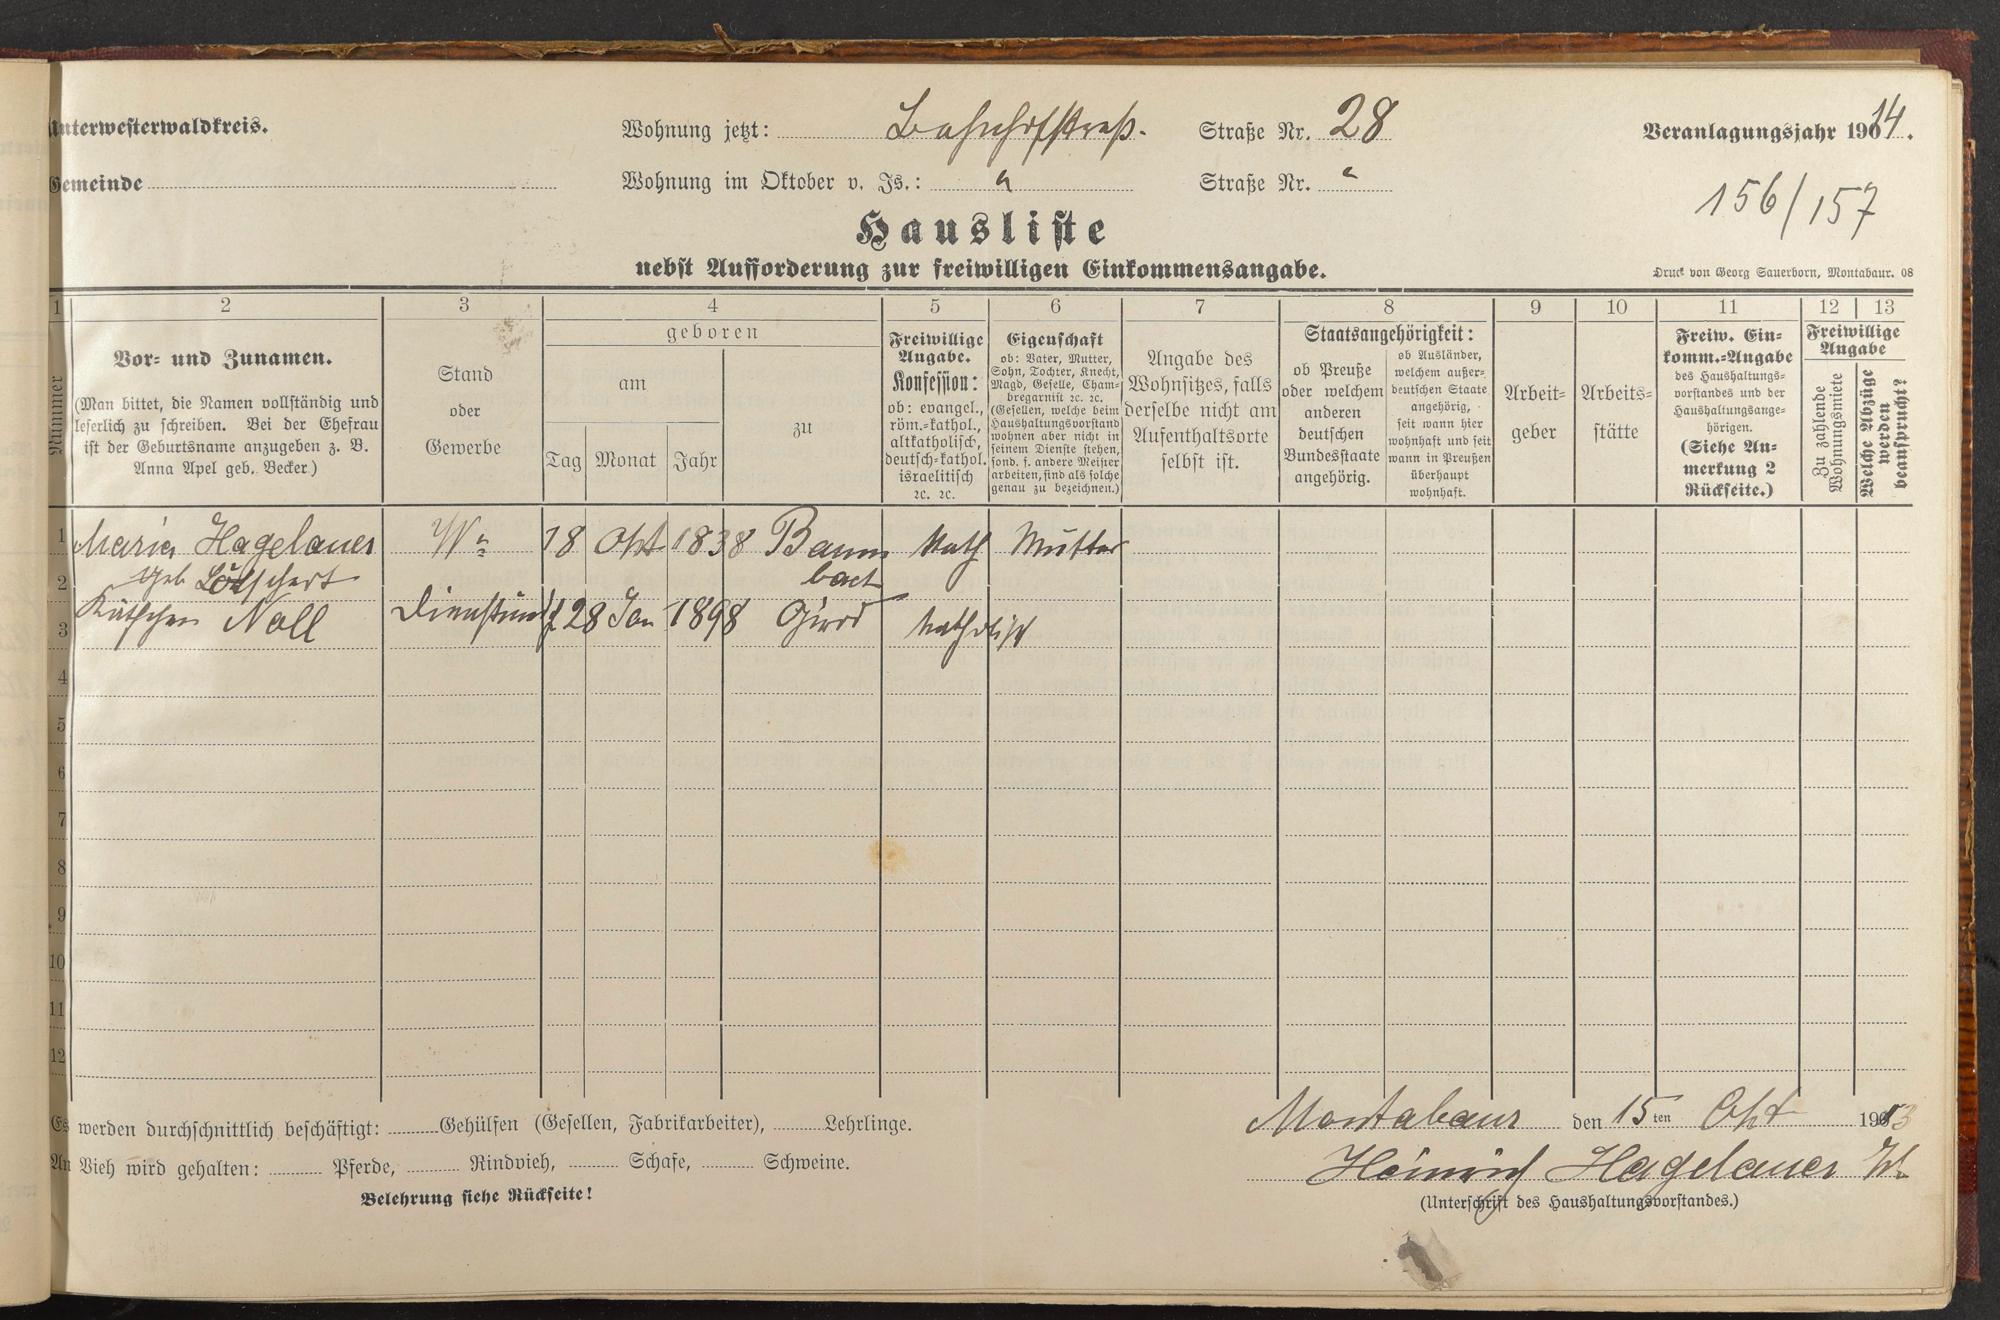 Unterwesterwaldkreis.
Wohnung jetzt: Bahnhofstraß. Straße Nr. 28
Veranlagungsjahr 1914.
Gemeinde
Wohnung im Oktober v. Js.: " Straße Nr. "
156/157
Hausliste
nebst Aufforderung zur freiwilligen Einkommensangabe.
Druck von Georg Sauerborn, Montabaur. 08
1 2 3 4 5 6 7 8 9 10 11 12 13
Nummer
Vor- und Zunamen.
(Man bittet, die Namen vollständig und
leserlich zu schreiben. Bei der Ehefrau
ist der Geburtsname anzugeben z. B.
Anna Apel geb. Becker.)
Stand
oder
Gewerbe
geboren
am
Tag Monat Jahr
zu
Freiwillige
Angabe.
Konfession:
ob: evangel.,
röm.-kathol.,
altkatholisch,
deutsch-kathol.
israelitisch
ꝛc. ꝛc.
Eigenschaft
ob: Vater, Mutter,
Sohn, Tochter, Knecht,
Magd, Geselle, Cham-
bregarnist ꝛc. ꝛc.
(Gesellen, welche beim
Haushaltungsvorstand
wohnen aber nicht in
seinem Dienste stehen,
sond. f. andere Meister
arbeiten, sind als solche
genau zu bezeichnen.)
Angabe des
Wohnsitzes, falls
derselbe nicht am
Aufenthaltsorte
selbst ist.
Staatsangehörigkeit:
ob Preuße
oder welchem
anderen
deutschen
Bundesstaate
angehörig.
ob Ausländer,
welchem außer-
deutschen Staate
angehörig,
seit wann hier
wohnhaft und seit
wann in Preußen
überhaupt
wohnhaft.
Arbeit-
geber
Arbeits-
stätte
Freiw. Ein-
komm.-Angabe
des Haushaltungs-
vorstandes und der
Haushaltungsange-
hörigen.
(Siehe An-
merkung 2
Rückseite.)
Freiwillige
Angabe
Zu zahlende
Wohnungsmiete
Welche Abzüge
werden
beansprucht?
1 Maria Hagelauer Ww 18 Okt 1838 Baum Kath Mutter
2 geb Lötschert bach
3 Käthchen Noll Dienstm 28 Jan 1898 Girod Katholisch
4
5
6
7
8
9
10
11
12
Es werden durchschnittlich beschäftigt: Gehülfen (Gesellen, Fabrikarbeiter), Lehrlinge.
An Vieh wird gehalten: Pferde, Rindvieh, Schafe, Schweine.
Belehrung siehe Rückseite!
Montabaur den 15ten Okt 1913
Heinrich Hagelauer
(Unterschrift des Haushaltungsvorstandes.)